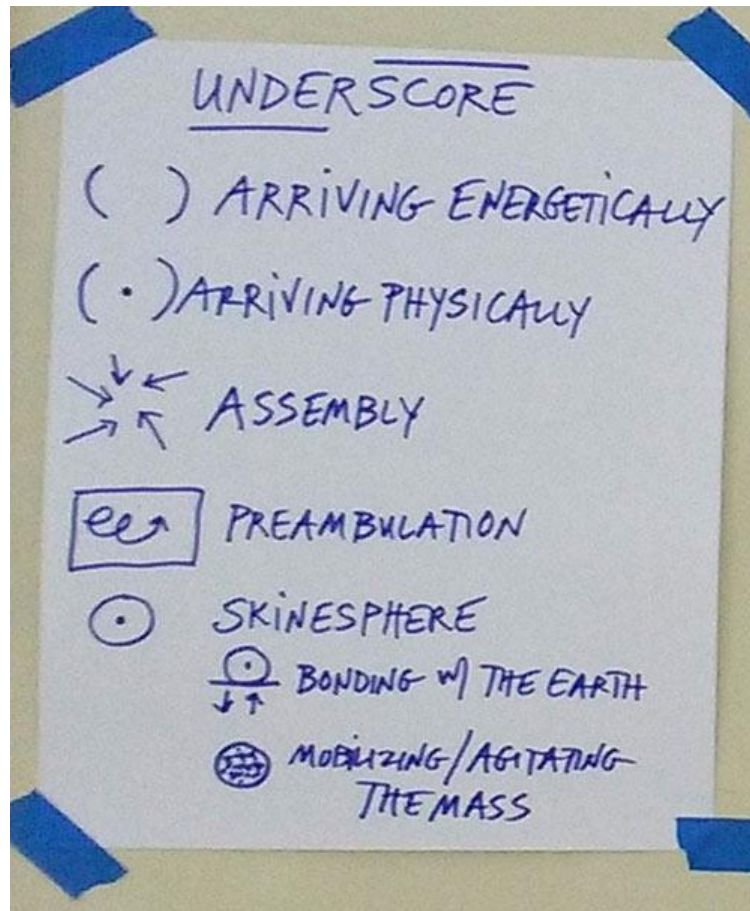 UNDERSCORE
( ) ARRIVING ENERGETICALLY
(·) ARRIVING PHYSICALLY
ASSEMBLY
PREAMBULATION
SKINESPHERE
BONDING W/ THE EARTH
MOBILIZING/AGITATING
THE MASS